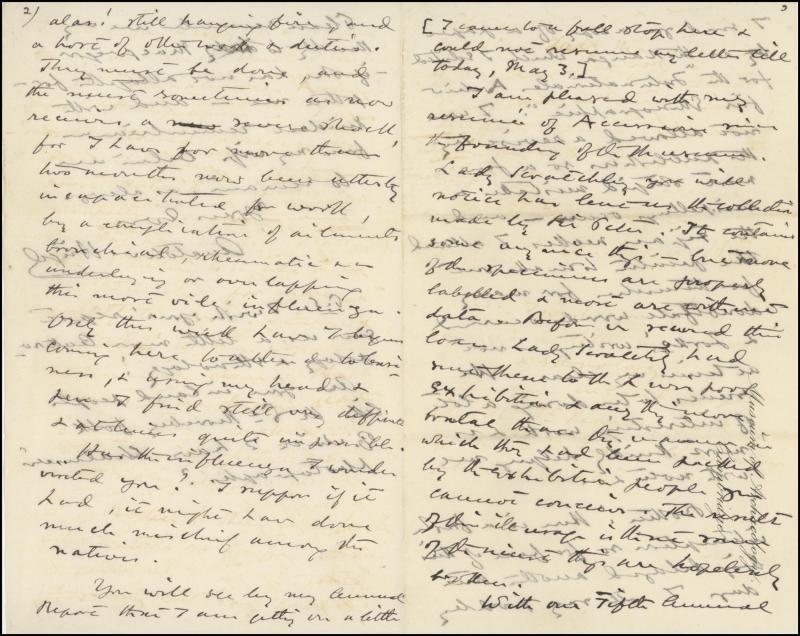 2) alas! still hanging fire, and
a host of other work & duties.
They must be done, and
the museum sometimes as now
receives a severe check,
for I have for more than
two months now been utterly
incapacitated for work,
by a complication of ailments
bronchial, rheumatic &c
underlying or overlapping
this most vile influenza.
Only this week have I begun
coming here to attend to busi-
ness, & using my head &
pen I find still very difficult
& at times quite impossible.
Has the influenza I wonder
visited you? I suppose if it
had, it might have done
much mischief among the
natives.
You will see by my Annual
Report that I am getting on a little
3
[I came to a full stop here &
could not resume my letter till
today, May 3.]
I am pleased with my
resumé of Accessions since
the founding of the Museum.
Lady Scratchley you will
notice has lent us the collection
made by Sir Peter. It contains
some very nice things, but none
of the specimens are properly
labelled & most are without
data. Before we received this
loan Lady Scratchley had
sent them to the Liverpool
Exhibition & any thing more
brutal than the manner in
which they had been packed
by the exhibition people you
cannot conceive. The result
of this ill usage is that some
of the nicest things are hopelessly
broken.
With our Fifth Annual